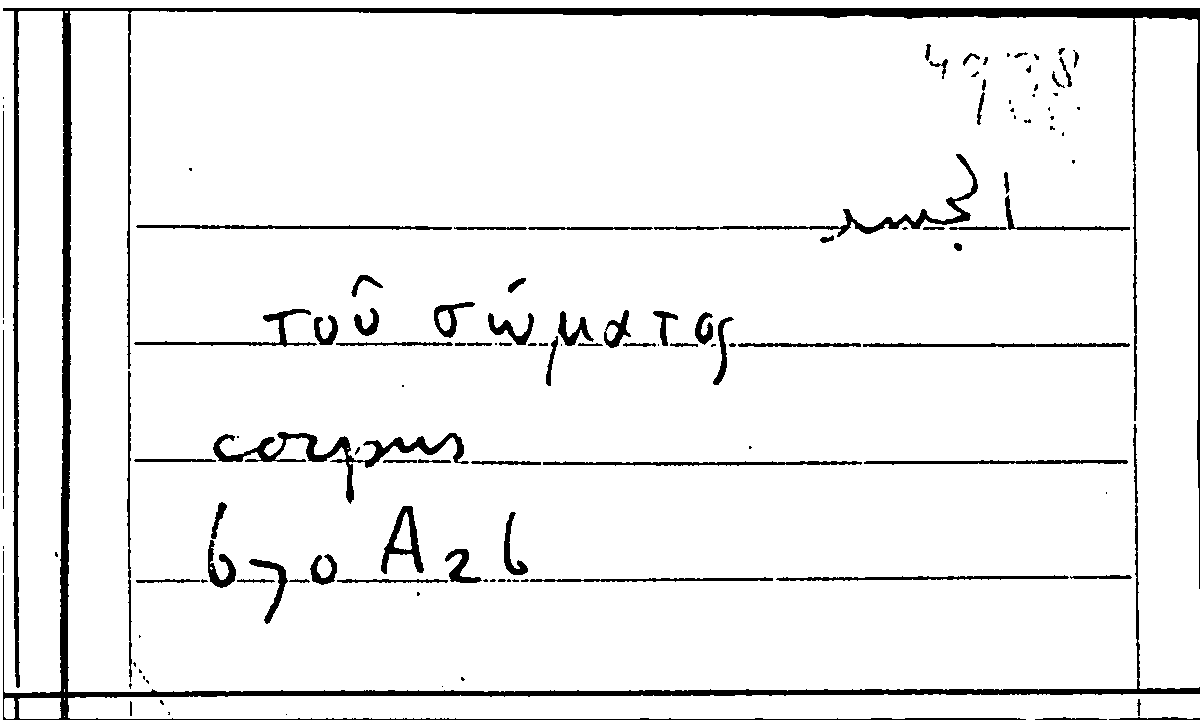 الجسد
τοῦ σώματος
corpus
670 A26